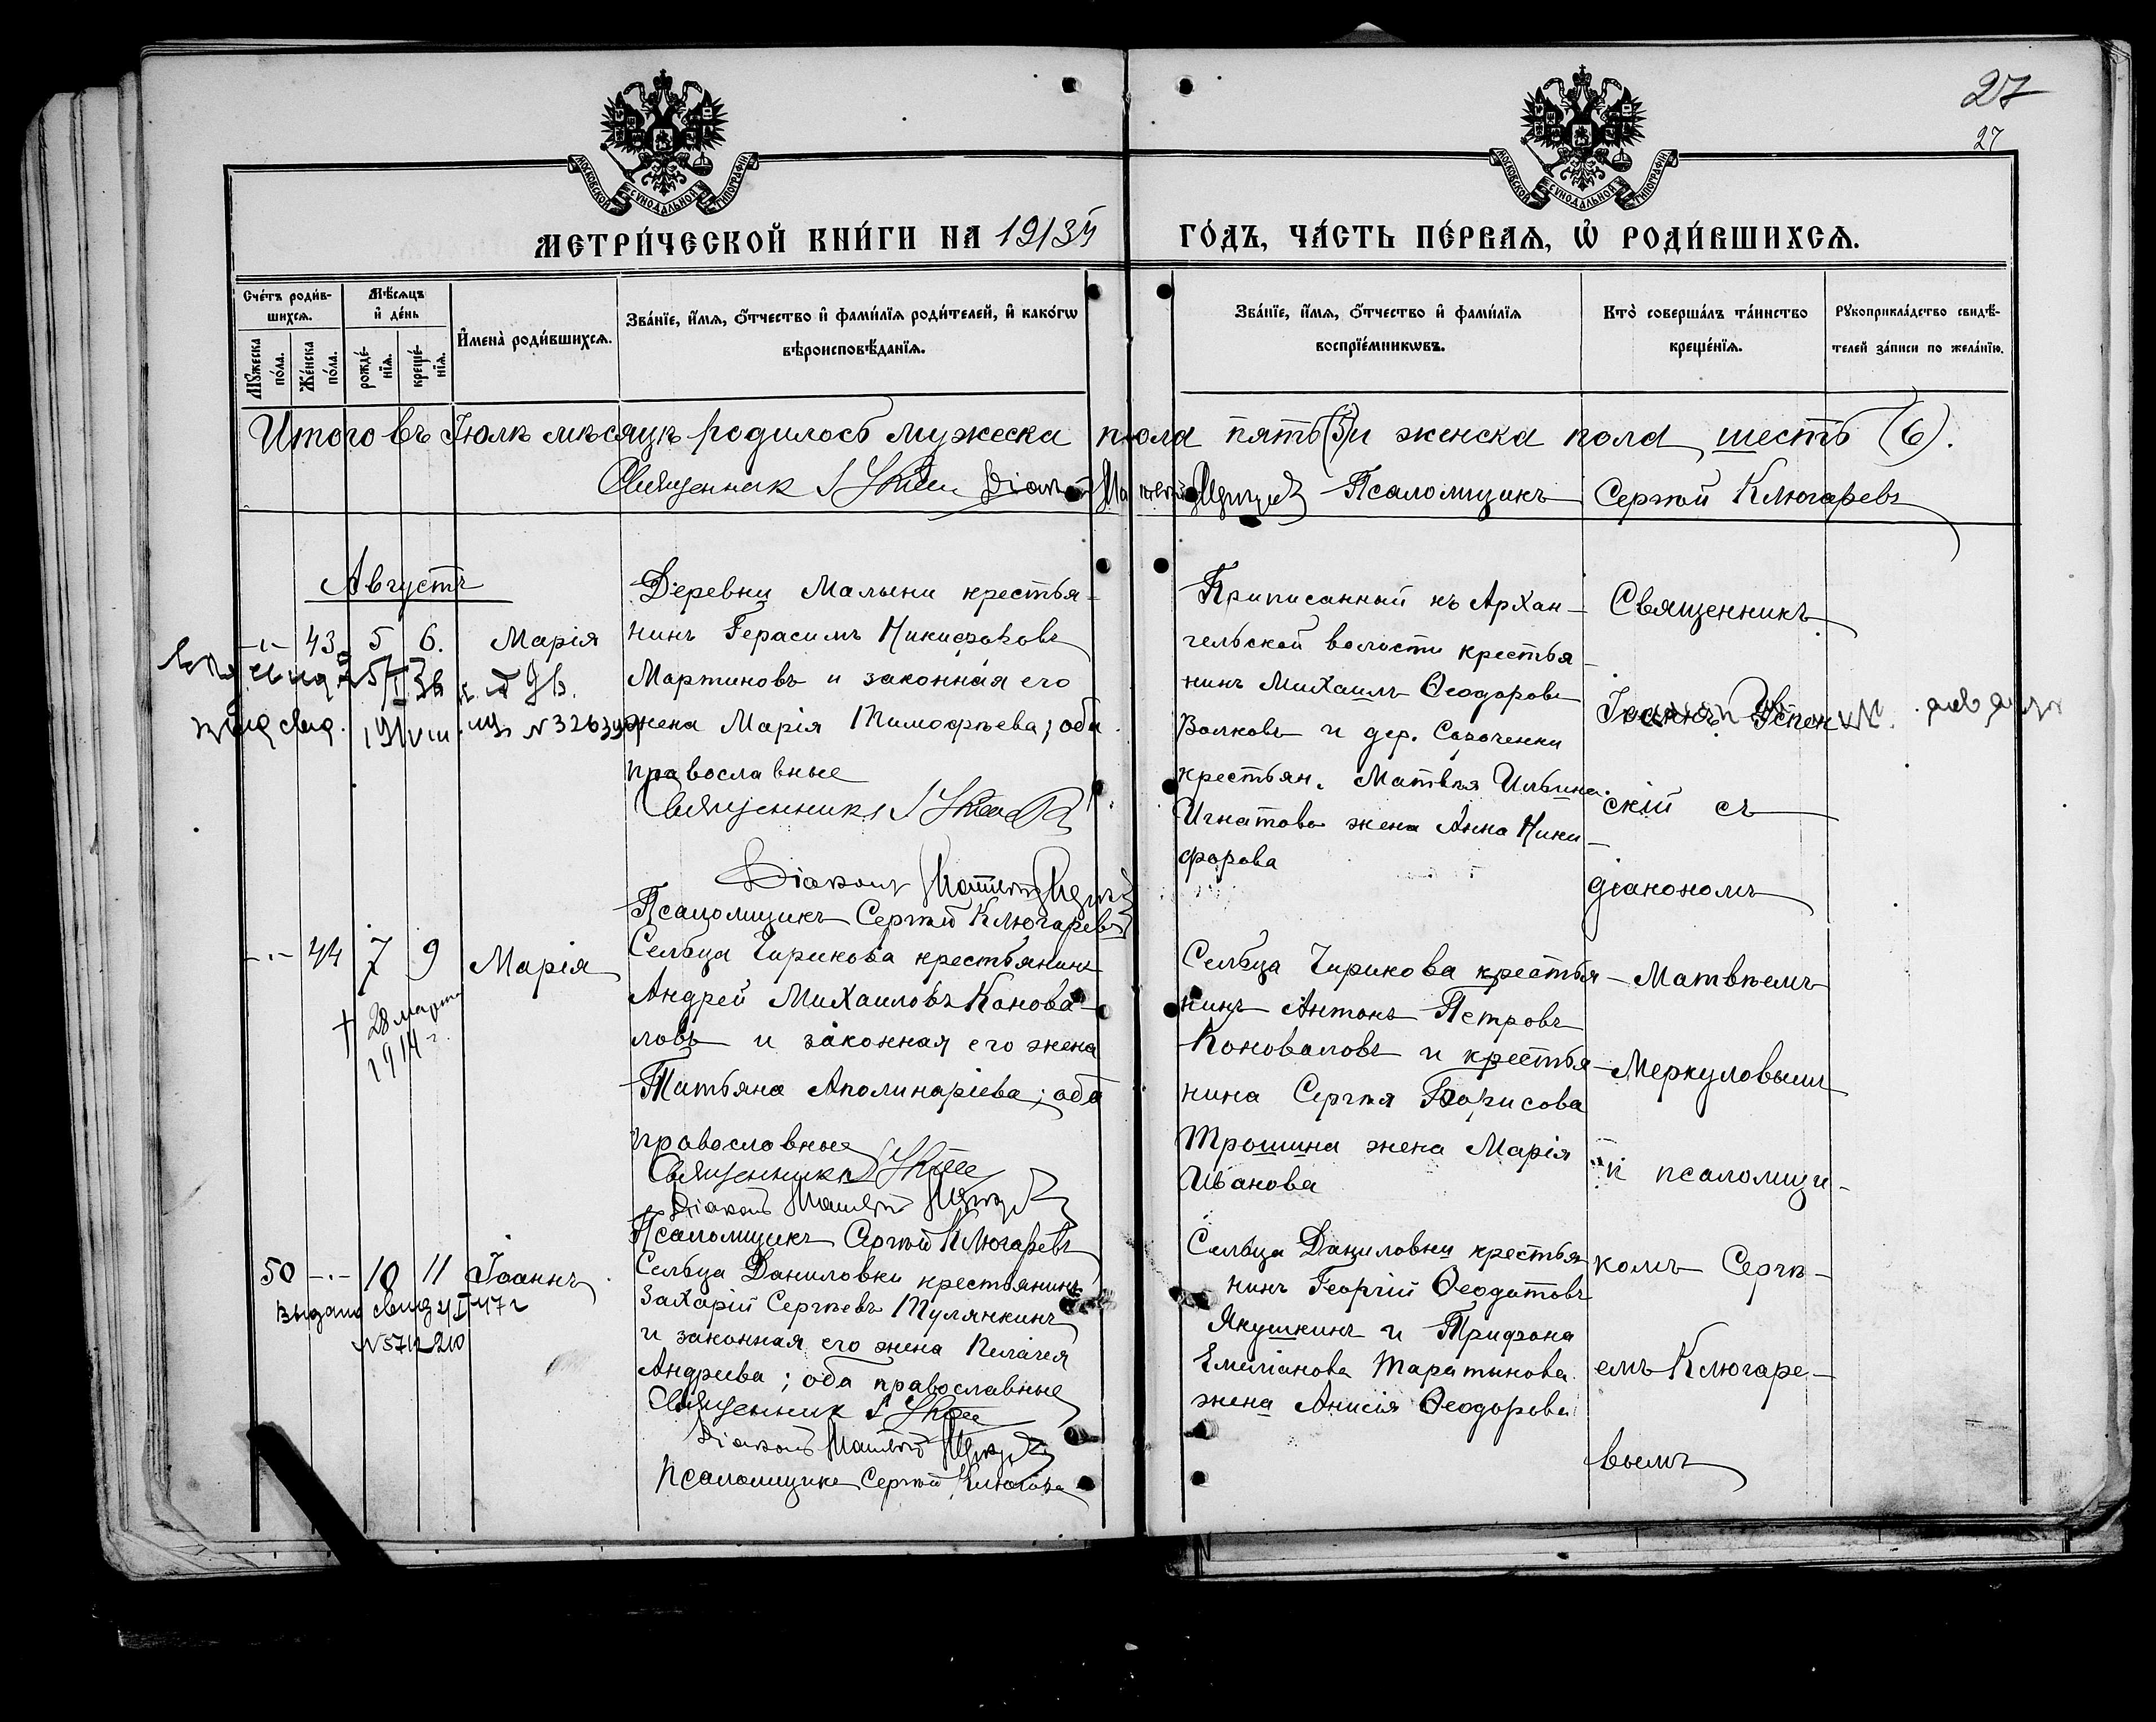 27
27
МОСКОВСКОЙ СѴНОДАЛЬНОЙ ТИПОГРАФІИ
МОСКОВСКОЙ СѴНОДАЛЬНОЙ ТИПОГРАФІИ
МЕТРИ́ЧЕСКОЙ КНИ́ГИ НА 1913й ГО́ДЪ, ЧА́СТЬ ПЕ́РВАѦ, Ѡ҆ РОДИ́ВШИХСѦ.
Сче́тъ роди́в-
шихсѧ.
Мꙋ́жеска по́ла.
Же́нска по́ла.
Мѣ́сѧцъ
и҆ де́нь
рожде́-
нїѧ.
креще́-
нїѧ.
И҆мена̀ роди́вшихсѧ.
Зва́нїе, и҆́мѧ, ѻ҆́тчество и҆ фами́лїѧ роди́телей, и҆ како́гѡ
вѣроисповѣ́данїѧ.
Зва́нїе, и҆́мѧ, ѻ҆́тчество и҆ фами́лїѧ
воспрїе́мникѡвъ.
Кто̀ соверша́лъ та́инство
креще́нїѧ.
Рꙋкоприкла́дство свидѣ́-
телей за́писи по жела́нїю.
Итого въ Іюлѣ мѣсяцѣ родилось мужеска пола пять (5) и женска пола шесть (6).
Священник Діакон Псаломщикъ Сергѣй Ключаревъ
Августъ
-"- 43 5 6. Марія
свид.
№ 32639
Деревни Малыни крестья-
нинъ Герасимъ Никифоровъ
Мартиновъ и законная его
жена Марія Тимофѣева; оба
православные
Священникъ
Діаконъ
Псаломщикъ Сергѣй Ключаревъ
Приписанный къ Архан-
гельской волости крестья-
нинъ Михаилъ Ѳеодоровъ
Волковъ и дер. Сороченки
крестьян. Матвѣя Ильина
Игнатова жена Анна Ники-
форова
Священникъ
Іоаннъ Успен
скій съ
діакономъ
-"- 44 7 9 Марія
† 28 марта
1914 г.
Сельца Чирикова крестьянинъ
Андрей Михаиловъ Конова-
ловъ и законная его жена
Татьяна Аполинаріева; оба
православные
Священникъ
Діаконъ
Псаломщикъ Сергѣй Ключаревъ
Сельца Чирикова крестья-
нинъ Антонъ Петровъ
Коноваловъ и крестья-
нина Сергѣя Борисова
Трошина жена Марія
Иванова
Матвѣемъ
Меркуловымъ
и псаломщи-
50 -"- 10 11 Іоаннъ
Выдано свид 4/I 47 г
Сельца Даниловки крестьянинъ
Захарій Сергѣевъ Тулянкинъ
и законная его жена Пелагея
Андреева; оба православные
Священник
Діаконъ
Псаломщикъ Сергѣй Ключарев
Сельца Даниловки крестья
нинъ Георгій Ѳеодотовъ
Якушкинъ и Трифона
Емеліанова Таратынова
жена Анисія Ѳеодорова
комъ Сергѣ-
емъ Ключаре-
вымъ